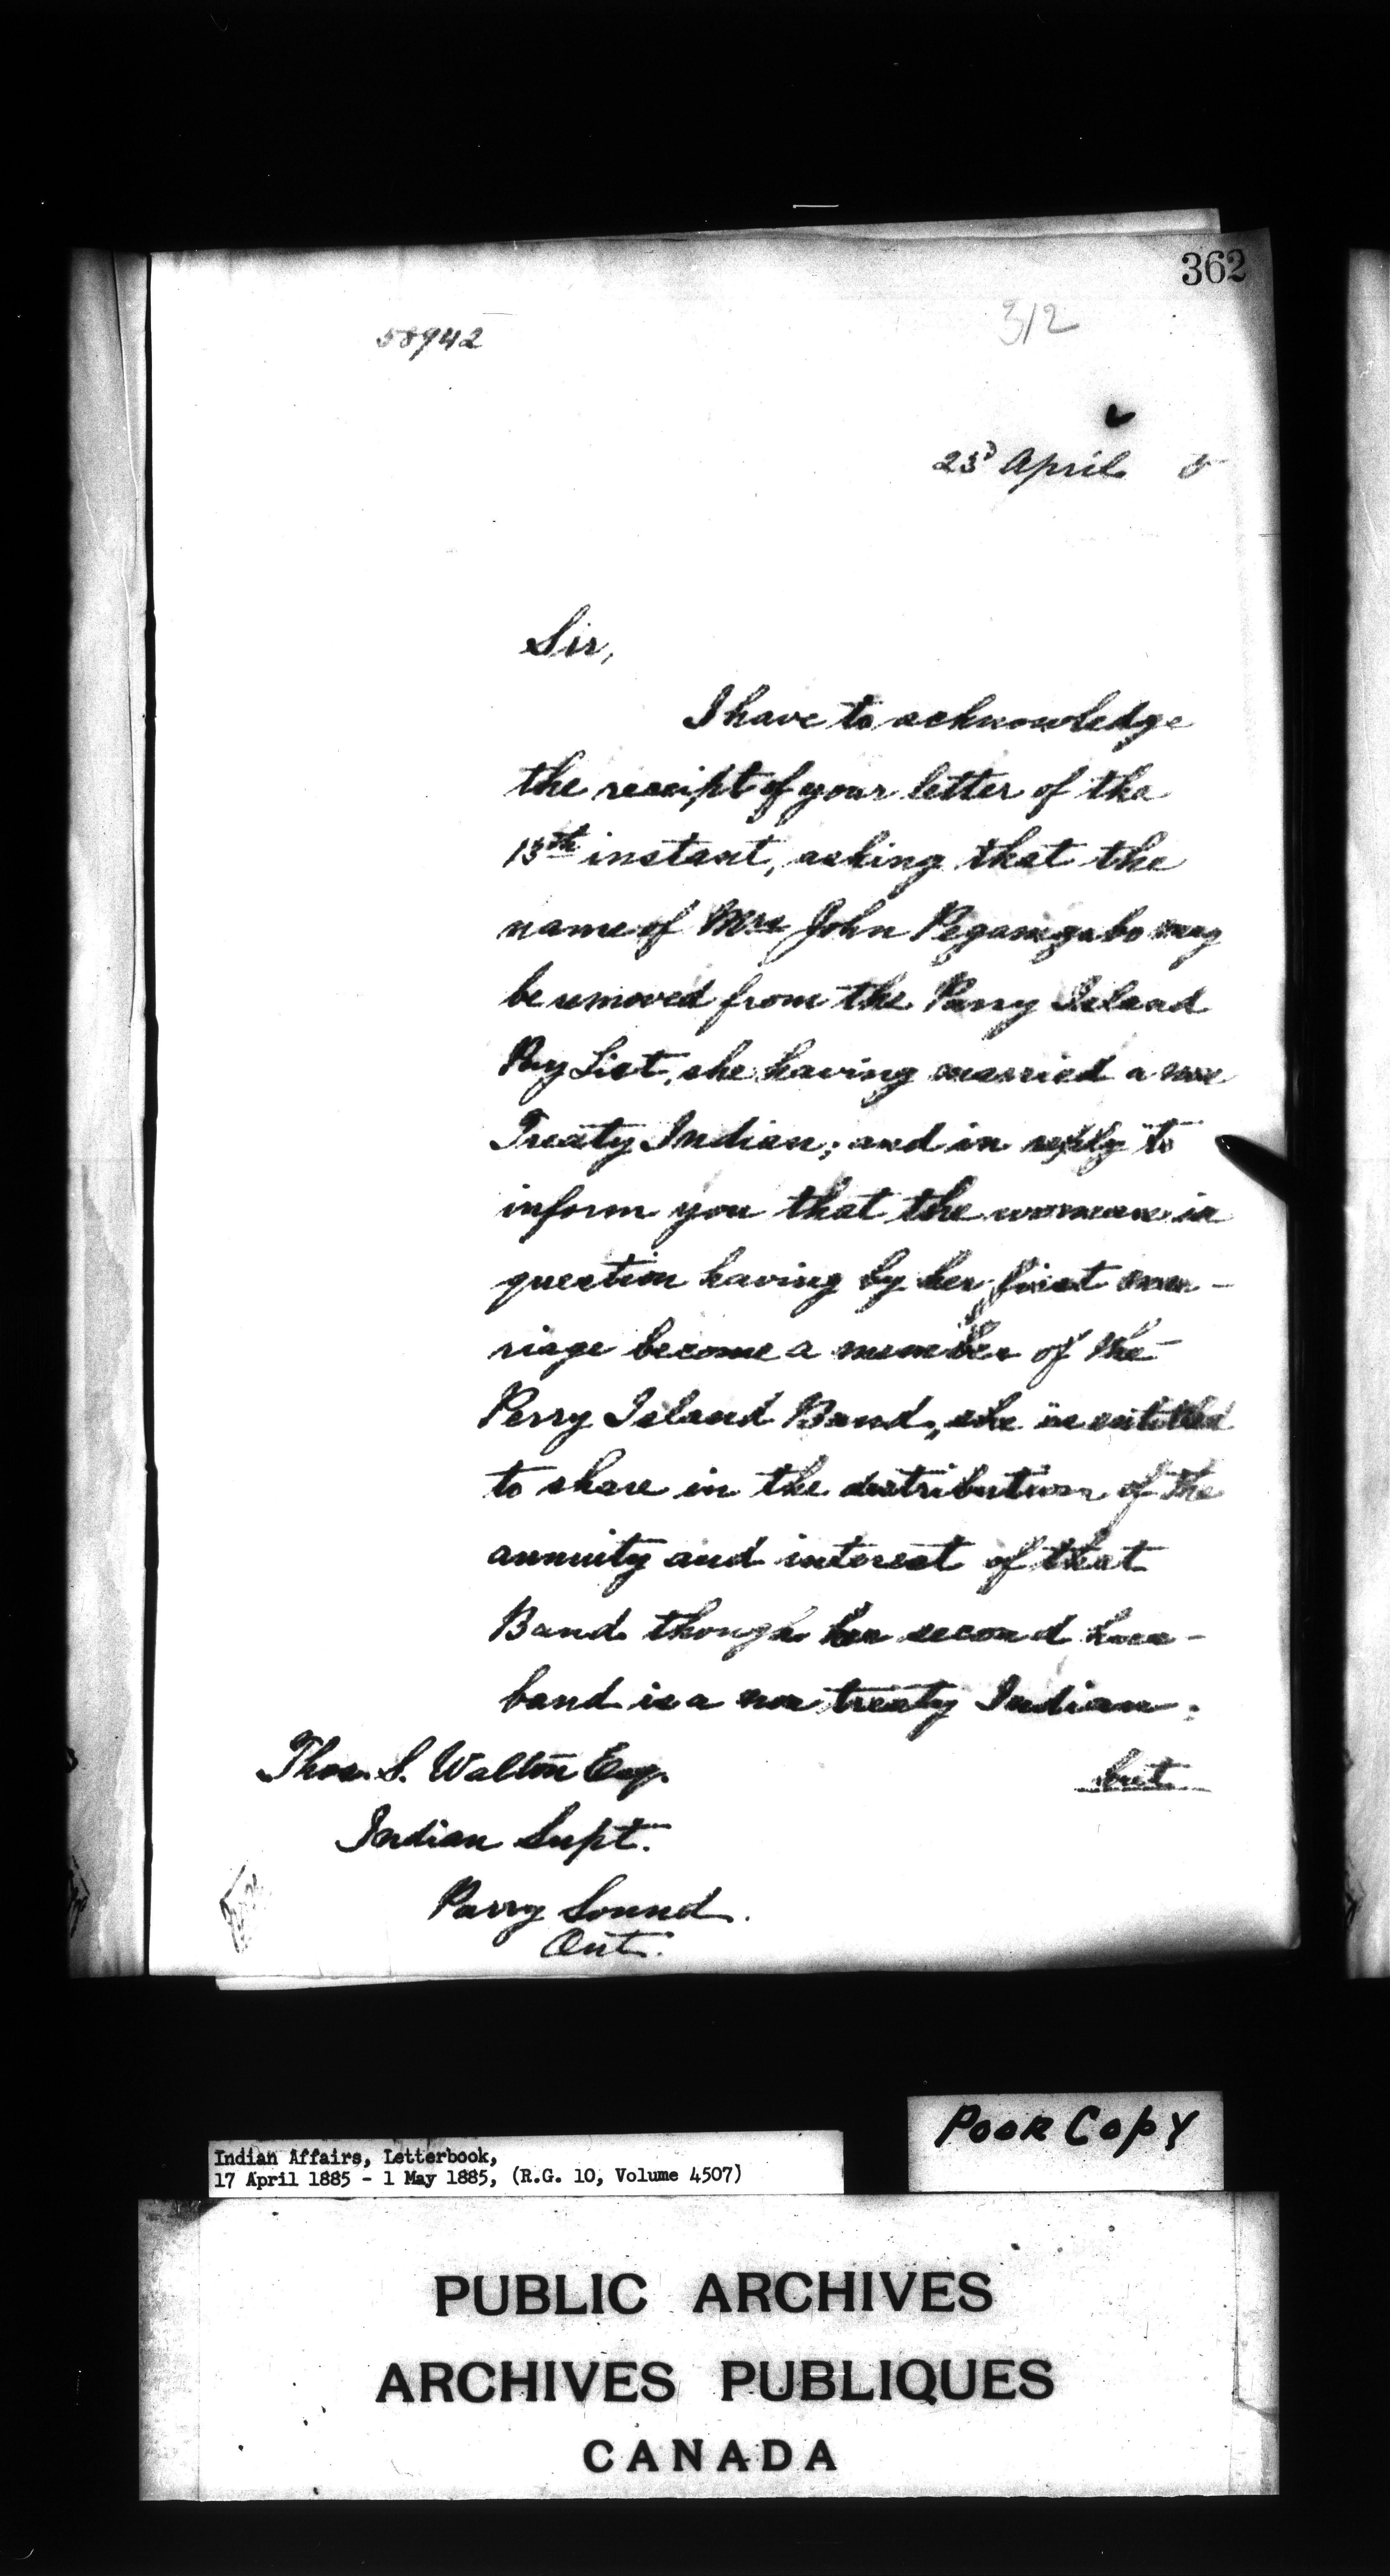 362
312
58942
23d April 5
Sir,
I have to acknowledge
the receipt of your letter of the
13th instant, asking that the
name of Mrs John Pegamegabo may
be removed from the Parry Island
Pay List, she having married a non
Treaty Indian; and in reply to
inform you that the woman in
question having by her first mar-
riage become a member of the
Parry Island Band, she is entitled
to share in the distribution of the
annuity and interest of that
Band though her second hus-
band is a non treaty Indian;
but
Thos. S. Walton Esq.
Indian Supt.
Parry Sound.
Ont.
POOR COPY
Indian Affairs, Letterbook,
17 April 1885 - 1 May 1885, (R.G. 10, Volume 4507)
PUBLIC ARCHIVES
ARCHIVES PUBLIQUES
CANADA